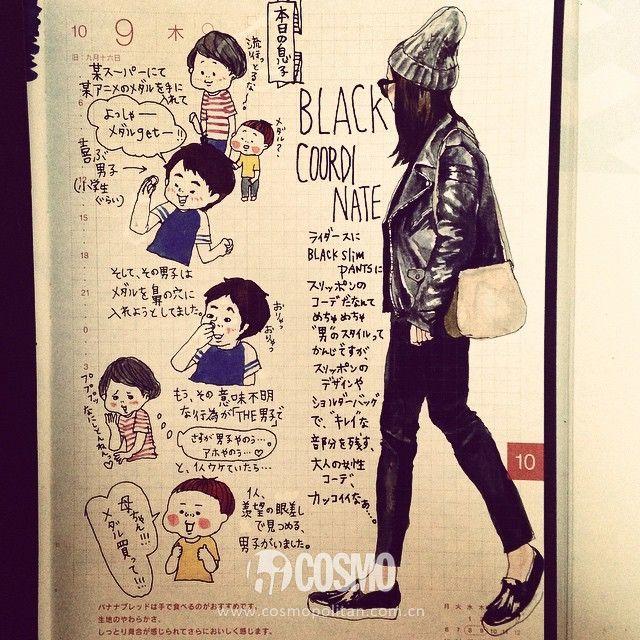 10 9 木
旧：九月十六日
本日の息子
某スーパーにて
某アニメのメダルを手に
入れて
流行っとるな
よっしゃー
メダルgetー!!
メダル？
喜ぶ
男子
(小学生
ぐらい)
そして、その男子は
メダルを鼻の穴に
入れようとしました。
おりゃっ
おりゃっ
ププッ
なにしとんねん
もう、その意味不明
な行為が「THE男子」で
さすが男子やのう…。
アホやのう…。♡
と、1人ウケていたら…
母ちゃん!!!
メダル買って!!!
1人、
羨望の眼差し
で見つめる、
男子がいました。
BLACK
COORDI
NATE
ライダースに
BLACK slim
PANTSに
スリッポンの
コーデだなんて
めちゃめちゃ
"男"のスタイルって
かんじですが、
スリッポンの
デザインや
ショルダーバッグ
で、"キレイ"な
部分を残す、
大人の女性
コーデ、
カッコイイなぁ…。
6
12
15
18
21
0
3
10
COSMO
www.cosmopolitan.com.cn
バナナブレッドは手で食べるのがおすすめです。
生地のやわらかさ、
しっとり具合が感じられてさらにおいしく感じます。
月 火 水 木